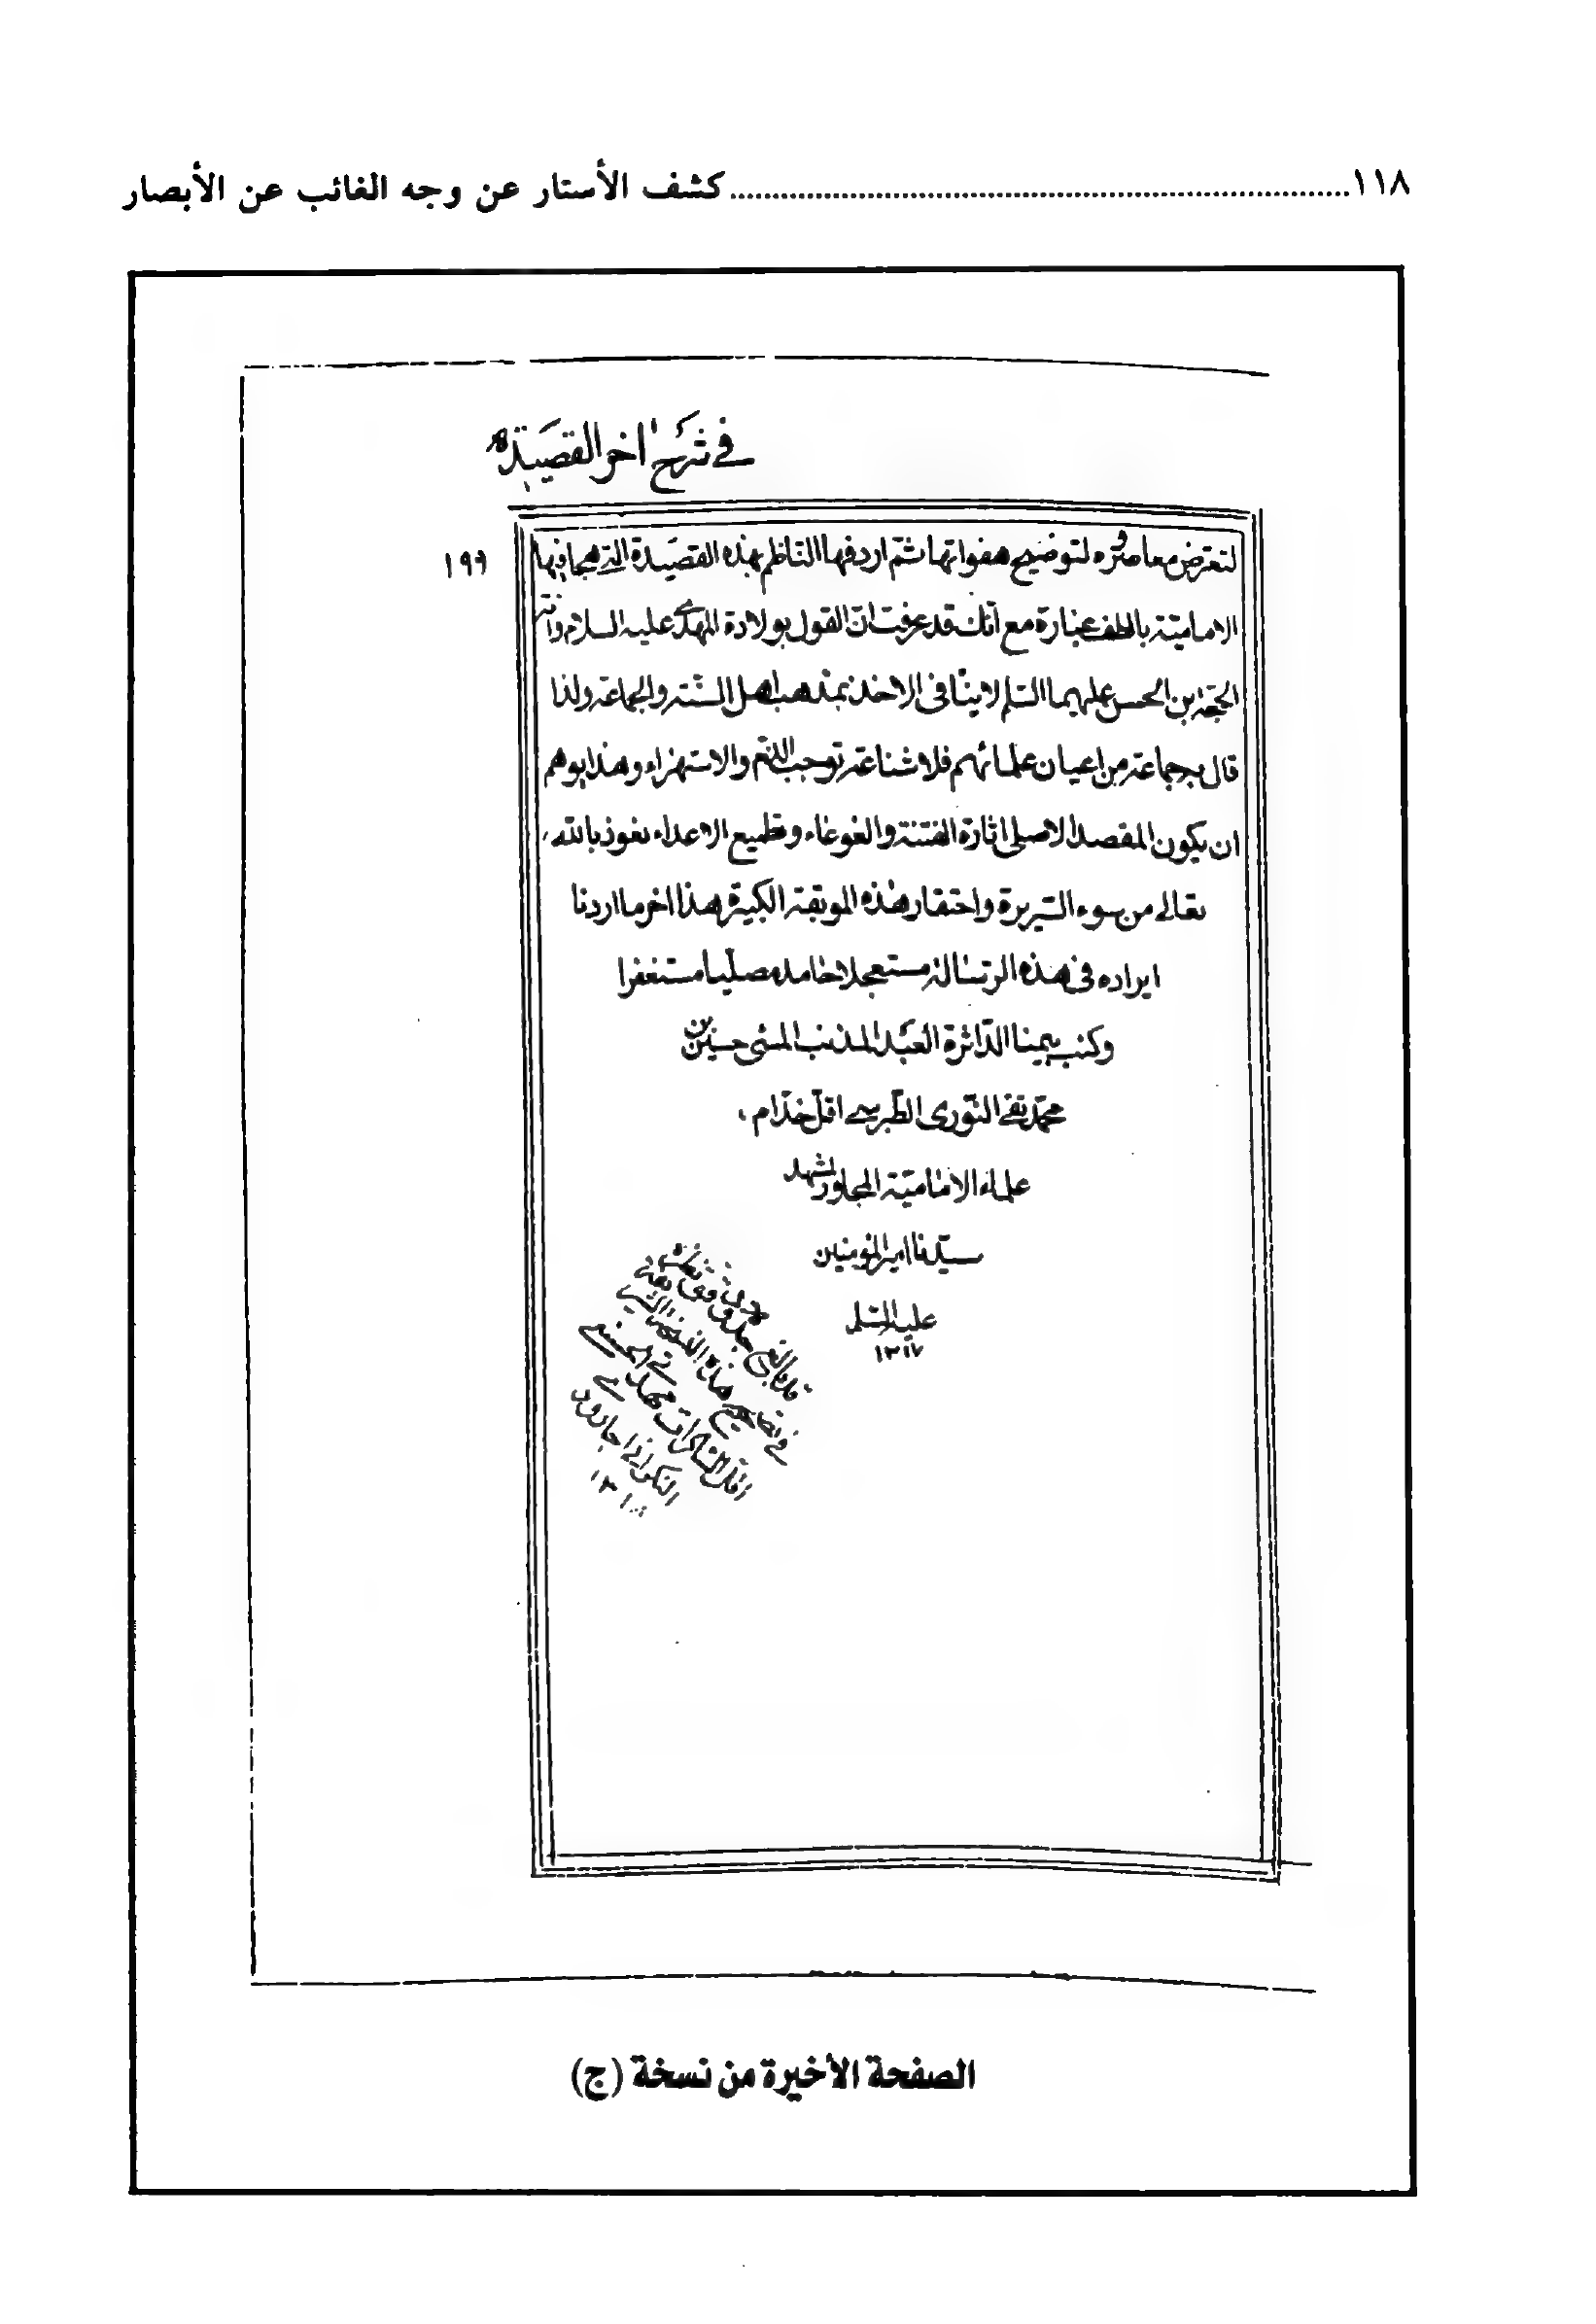 ١١٨ ........ كشف الأستار عن وجه الغائب عن الأبصار
في شرح اخر القصيدة
١٩٩
لتعرض معاصروه لتوضيح هفواتها ثم اردفها الناظم بهذه القصيدة التي هجا فيها
الامامية بالطف عبارة مع انك قد عرفت ان القول بولادة المهدي عليه السلام وانه
الحجة ابن الحسن عليهما السلم لا ينافى الاخذ بمذهب اهل السنة والجماعة ولذا
قال به جماعة من اعيان علمائهم فلا شناعة توجب الذم والاستهزاء وهذا يوهم
ان يكون المقصد الاصلى اثارة الفتنة والغوغاء وتطميع الاعداء نعوذ بالله
تعالى من سوء السريرة واحتقار هذه الموبقة الكبيرة هذا اخر ما اردنا
ايراده في هذه الرسالة مستعجلا حامدا مصليا مستغفرا
وكتب بيمناه الداثرة العبد المذنب المسئ حسين بن
محمد تقي النورى الطبرسي اقل خدام
علماء الامامية المجاور لمشهد
سيدنا امير المؤمنين
عليه السلم
١٣١٧
في تصحيح هذه النسخة
١٣١٨
الصفحة الأخيرة من نسخة (ج)